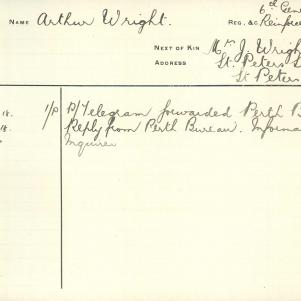 NAME Arthur Wright.
6th Gen
REG. &C. Reinfor
NEXT OF KIN Mr J. Wrigh
ADDRESS St. Peters S
St Peters
18. 1/P P/Telegram forwarded Perth B
18. Reply from Perth Bureau. Informa
Inquirer